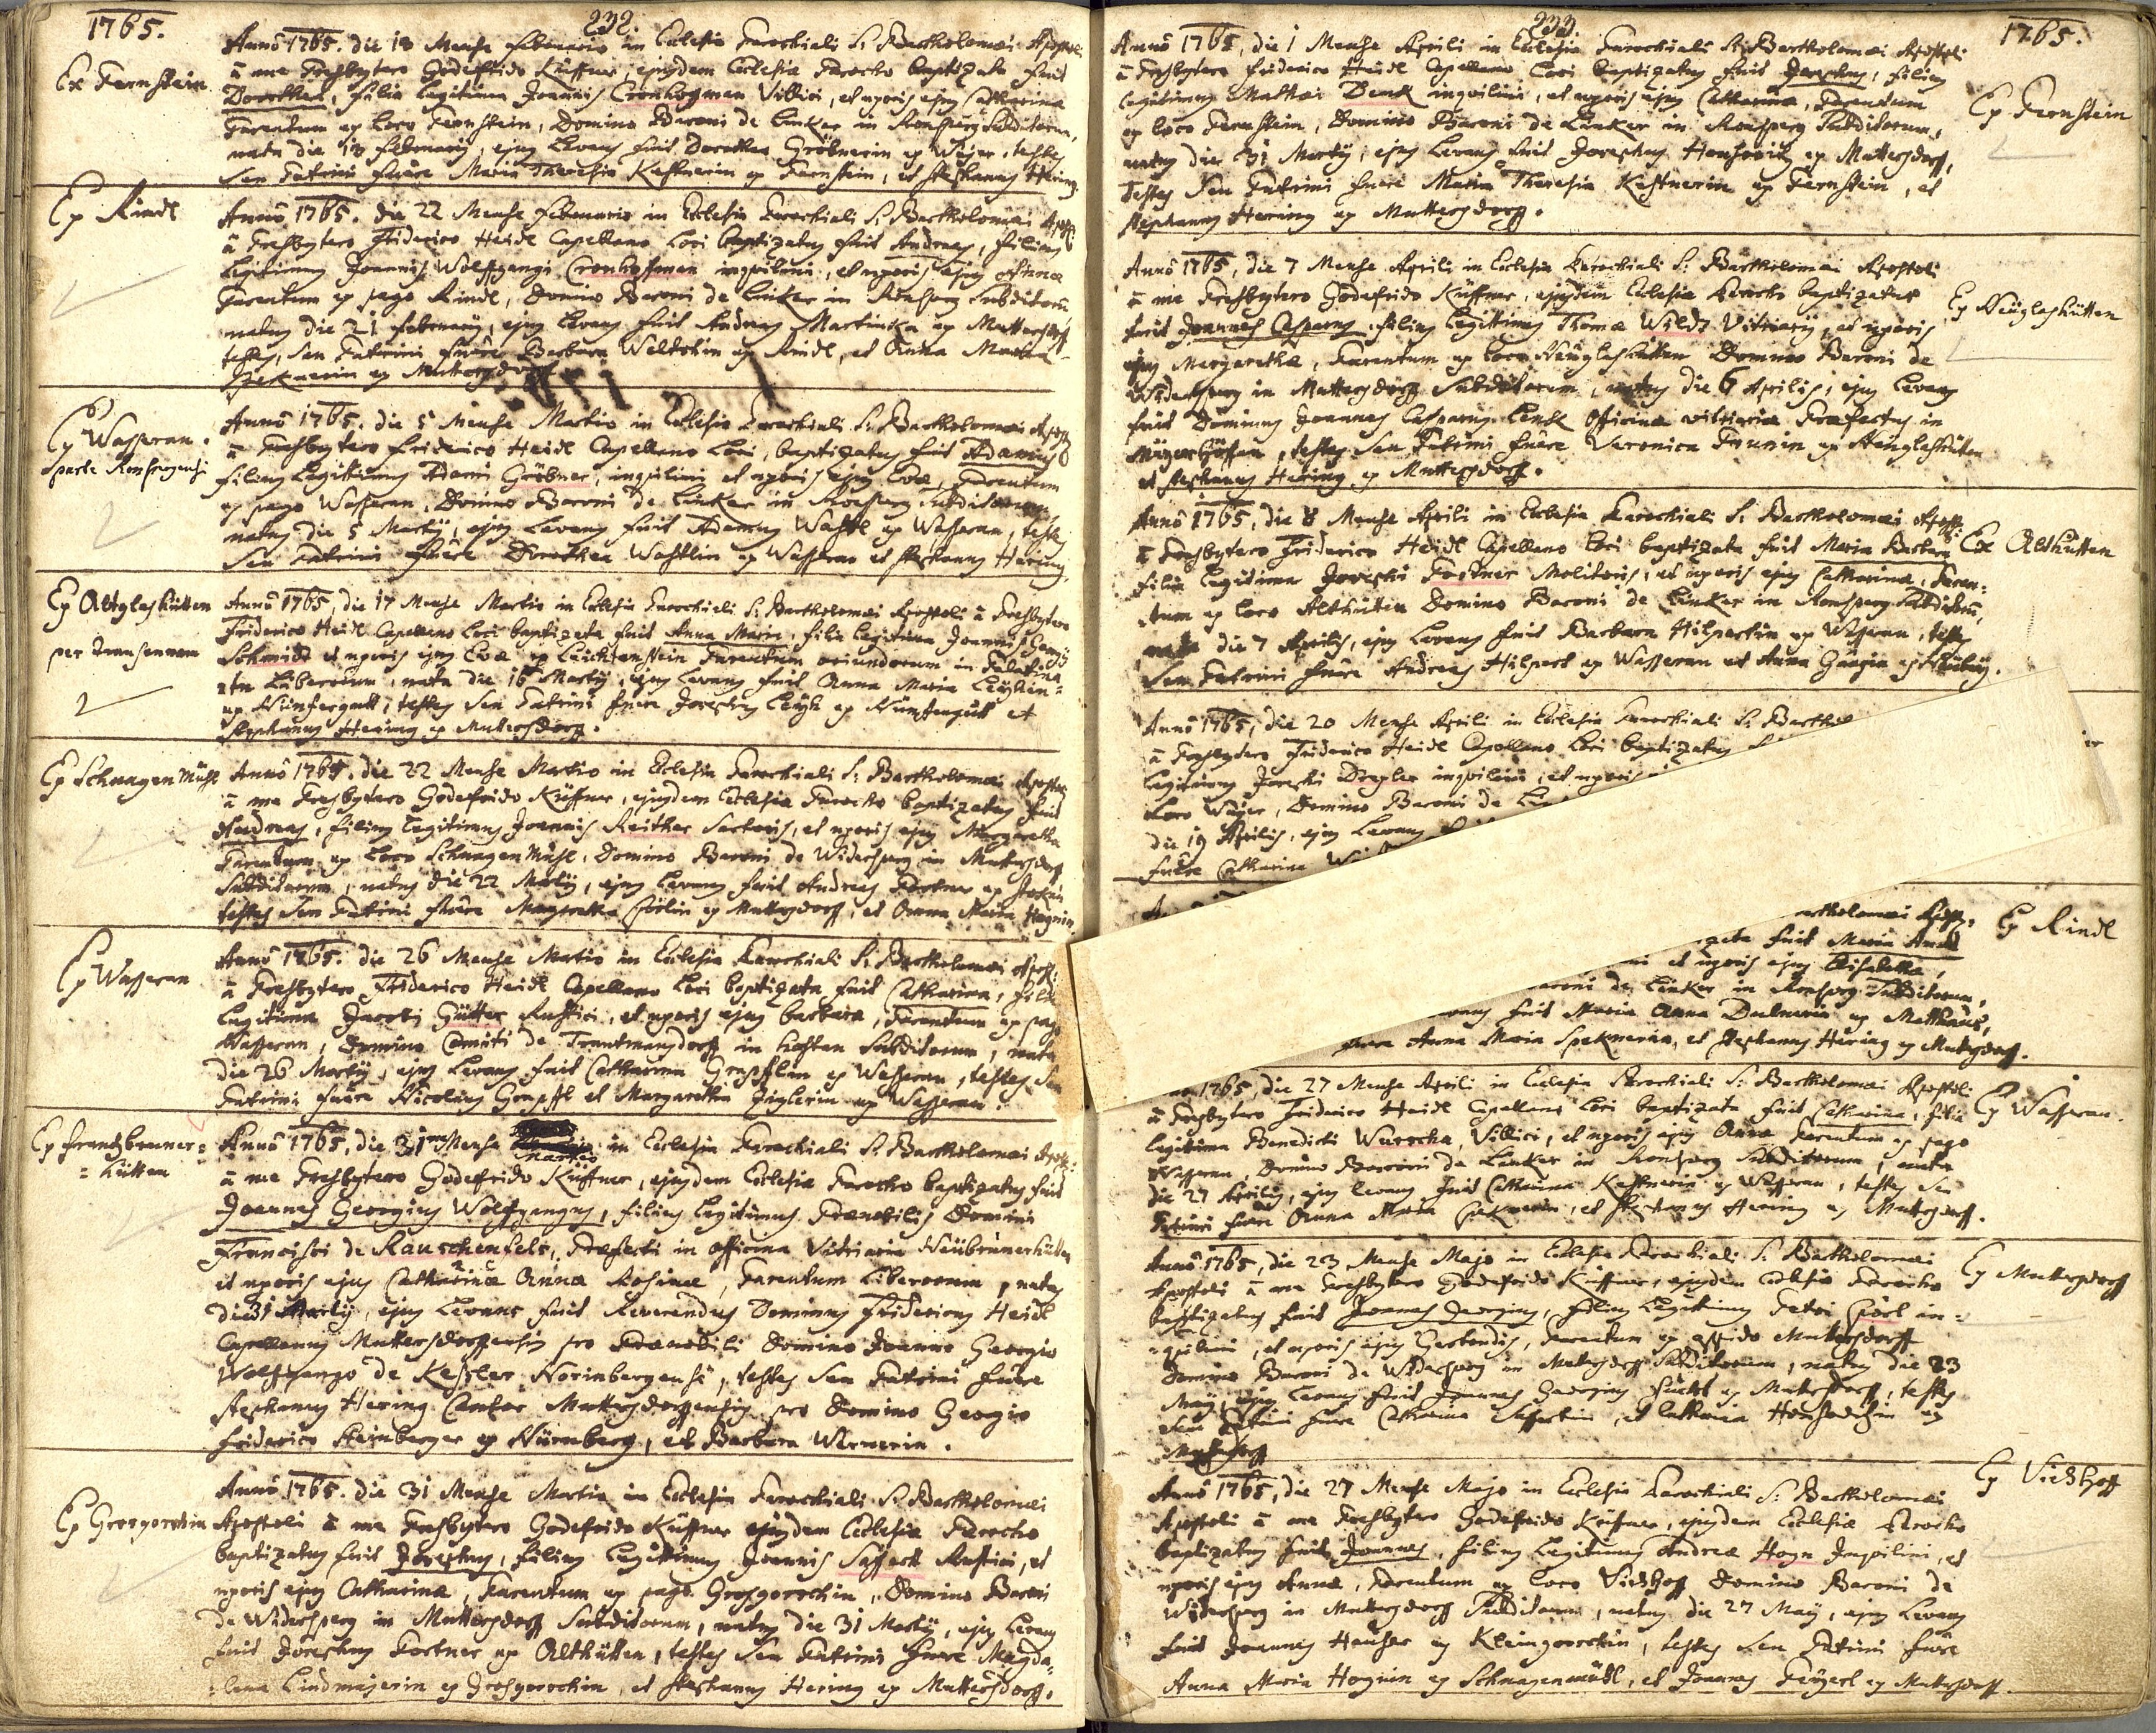 1765.
232.
Ex Fernstein
Anno 1765. die 13 Mense Februario in Ecclesia Parochiali S. Bartholomæi Apostoli
à me Presbytero Godefrido Küffner, ejusdem Ecclesiæ Parocho baptizata fuit
Dorothea, filia legitima Joannis Cronhofman Villici, et uxoris ejus Catharinæ
Parentum ex loco Fernstein, Domino Baroni de Linker in Ronsperg Subditorum,
nata die 13 February, ejus Levans fuit Dorothea Gröbnerin ex Wajer, testes
seu Patrini fuêre Maria Theresia Kastnerin ex Fernstein, et Stephanus Hering.
Ex Rindl
Anno 1765. die 22 Mense Februario in Ecclesia Parochiali S. Bartholomæi Apostoli
à Presbytero Friderico Heidl Capellano Loci baptizatus fuit Andreas, filius
Legitimus Joannis Wolffgangi Cronhoffman inquilini, et uxoris ejus Annæ
Parentum ex pago Rindl, Domino Baroni de Linker in Ronsperg Subditorũ
natus die 21 February, ejus Levans fuit Andreas Martinka ex Muttersdorff
testes, seu Patrini fuêre Barbara Weltschin ex Rindl, et Anna Maria
Speknerin ex Muttersdorff
Ex Wasseran.
parte Ronspergensi
Anno 1765. die 5 Mense Martio in Ecclesia Parochiali S. Bartholomæi Apostoli
à Presbytero Friderico Heidl Capellano Loci, baptizatus fuit Adamus
filius Legitimus Adami Gröbner, inquilini et uxoris ejus Evæ, Parentum
ex pago Wasseran, Domino Baroni de Linker in Ronsperg Subditorum
natus die 5 Marty, ejus Levans fuit Adamus Wachtl ex Wasseran, testes
seu Patrini fuêre Dorothea Wachtlin ex Wasseran et Stephanus Hering.
Ex Altglashütten
per transennam
Anno 1765, die 17 Mense Martio in Ecclesia Parochiali S. Bartholomæi Apostoli à Presbytero
Friderico Heidl Capellano Loci baptizata fuit Anna Maria, filia Legitima Joannis
Schmidt et uxoris ejus Evæ ex Leichtenstein Parentum oriundorum in Palatina
tu Liberorum, nata die 16 Marty, ejus Levans fuit Anna Maria
testes seu Patrini fuêre Josephus et
Stephanus Hering ex Muttersdorff.
Ex Schnagen Mühl
Anno 1765. die 22 Mense Martio in Ecclesia Parochiali S. Bartholomæi Apostoli
à me Presbytero Godefrido Küffner, ejusdem Ecclesiæ Parocho baptizatus fuit
Andreas, filius legitimus Joannis Reither Sartoris, et uxoris ejus Margarethæ
Parentum ex loco Schnagen Mühl, Domino Baroni de Widersperg in Muttersdorff
Subditorum, natus die 22 Marty, ejus Levans fuit Andreas Fortner ex
testes seu Patrini fuêre Margaretha ex Muttersdorff, et Anna Maria Hognin
Ex Wasseran
Anno 1765. die 26 Mense Martio in Ecclesia Parochiali S. Bartholomæi Apost:
à Presbytero Friderico Heidl Capellano Loci baptizata fuit Catharina, filia
Legitima Jacobi Gütter Rustici, et uxoris ejus barbara, Parentum ex pago
Wasseran, Domino Comiti de Trautmansdorff in Hostau Subditorum, nata
die 26 Marty, ejus Levans fuit Catharina ex Wasseran, testes seu
Patrini fuêre Nicolaus et Margaretha Ziglerin ex Wasseran.
Ex Frantzbrunner=
=hütten
Anno 1765, die 31 Mense Martio in Ecclesia Parochiali S. Bartholomæi Apost:
à me Presbytero Godefrido Küffner, ejusdem Ecclesiæ Parocho baptizatus fuit
Joannes Georgius Wolffgangus, filius Legitimus Prænobilis Domini
Francisci de Rauschenfels, Præfecti in officina Vitriaria Neübrunerhütten
et uxoris ejus Catharinæ Annæ Rosinæ, Parentum Liberorum, natus
die 31 Marty, ejus Levans fuit Reverendus Dominus Fridericus Heidl
Capellanus Muttersdorffensis pro Prænobili Domino Joanne Georgio
Wolffgango de Kessler Norinbergensi, testes seu Patrini fuêre
Stephanus Hering Cantor Muttersdorffensis pro Domino Georgio
Friderico Steinberger ex Nürnberg, et Barbara Wernerin.
Ex Grosgorschin
Anno 1765. die 31 Mense Martio in Ecclesia Parochiali S. Bartholomæi
Apostoli à me Presbytero Godefrido Küffner ejusdem Ecclesiæ Parocho
baptizatus fuit Josephus, filius Legitimus Joannis Saffert Rustici, et
uxoris ejus Catharinæ, Parentum ex pago Grosgorschin, Domino Baroni
de Widersperg in Muttersdorff Subditorum, natus die 31 Marty, ejus Levans
fuit Josephus Fortner ex Althütten, testes seu Patrini fuere Magda=
=lena Lindmajerin ex Grosgorschin, et Stephanus Hering ex Muttersdorff.
233.
1765.
Anno 1765, die 1 Mense Aprili in Ecclesia Parochiali S. Bartholomæi Apostoli
à Presbytero Friderico Heidl Capellano Loci baptizatus fuit Josephus, filius
legitimus Mathæi Denk inquilini, et uxoris ejus Catharinæ, Parentum
ex loco Fernstein, Domino Baroni de Linker in Ronsperg Subditorum,
natus die 31 Marty, ejus Levans fuit Josephus ex Muttersdorff,
testes seu Patrini fuere Maria Theresia Kastnerin ex Fernstein, et
Stephanus Hering ex Muttersdorff.
Ex Fernstein
Anno 1765, die 7 Mense Aprili in Ecclesia Parochiali S. Bartholomæi Apostoli
à me Presbytero Godefrido Küffner, ejusdem Ecclesiæ Parocho baptizatus
fuit Joannes Casparus, filius Legitimus Thomæ Wildt Vitriary, et uxoris
ejus Margarethæ, Parentum ex loco Neüglashütten Domino Baroni de
Widersperg in Muttersdorff Subditorum, natus die 6 Aprilis, ejus Levans
fuit Dominus Joannes Casparus Lenk Officinæ vitriariæ Præfectus in
testes seu Patrini fuêre Veronica ex Neüglashütten
et Stephanus Hering ex Muttersdorff.
Ex Neüglashütten
Anno 1765, die 8 Mense Aprili in Ecclesia Parochiali S. Bartholomæi Apost.
à Presbytero Friderico Heidl Capellano Loci baptizata fuit Maria Barbara
filia Legitima Josephi Fortner Molitoris, et uxoris ejus Catharinæ, Paren=
tum ex loco Althütten Domino Baroni de Linker in Ronsperg Subditorũ,
nata die 7 Aprilis, ejus Levans fuit Barbara Hilpertin ex Wasseran, testes
seu Patrini fuêre Andreas Hilpert ex Wasseran et Anna
Ex Althütten
Anno 1765, die 20 Mense Aprili in Ecclesia Parochiali S. Barthol
à Presbytero Friderico Heidl Capellano Loci baptizatus
Legitimus Josephi Drexler inquilini, et uxoris
Loco Wajer, Domino Baroni de Lin
die 19 Aprilis, ejus Levans
fuêre Catharina
artholomæi Apost.
zata fuit Maria Anna
et uxoris ejus Elisabetha,
aroni de Linker in Ronsperg Subditorum,
fuit Maria Anna
Anna Maria Speknerin, et Stephanus Hering ex Muttersdorff.
Ex Rindl
1765, die 27 Mense Aprili in Ecclesia Parochiali S. Bartholomæi Apostoli
à Presbytero Friderico Heidl Capellano Loci baptizata fuit Catharina, filia
legitima Benedicti Wurscha, Villici, et uxoris ejus Annæ Parentum ex pago
Wasseran, Domino Baroni de Linker in Ronsperg Subditorum, nata
die 27 Aprilis, ejus levans fuit Catharina Kastnerin ex Wasseran, testes seu
Patrini fuere Anna Maria Speknerin, et Stephanus Hering ex Muttersdorff.
Ex Wasseran.
Anno 1765, die 23 Mense Majo in Ecclesia Parochiali S. Bartholomæi
Apostoli à me Presbytero Godefrido Küffner, ejusdem Ecclesiæ Parocho
baptizatus fuit Joannes Georgius, filius Legitimus Petri in=
=quilini, et uxoris ejus Gertrudis, Parentum ex oppido Muttersdorff
Domino Baroni de Widersperg in Muttersdorff Subditorum, natus die 23
May, ejus Levans fuit Joannes Georgius ex Muttersdorff, testes
seu Patrini fuere Catharina Saffertin, et Catharina ex
Muttersdorff
Ex Muttersdorff
Anno 1765, die 27 Mense Majo in Ecclesia Parochiali S. Bartholomæi
Apostoli à me Presbytero Godefrido Küffner, ejusdem Ecclesiæ Parocho
baptizatus fuit Joannes, filius Legitimus Andreæ Hogn Inquilini, et
uxoris ejus Annæ, Parentum ex loco Viehhoff Domino Baroni de
Widersperg in Muttersdorff Subditorum, natus die 27 May, ejus Levans
fuit Joannes Hauser ex Kleingorschin, testes seu Patrini fuêre
Anna Maria Hognin ex Schnagenmühl, et Joannes ex Muttersdorff.
Ex Viehhoff